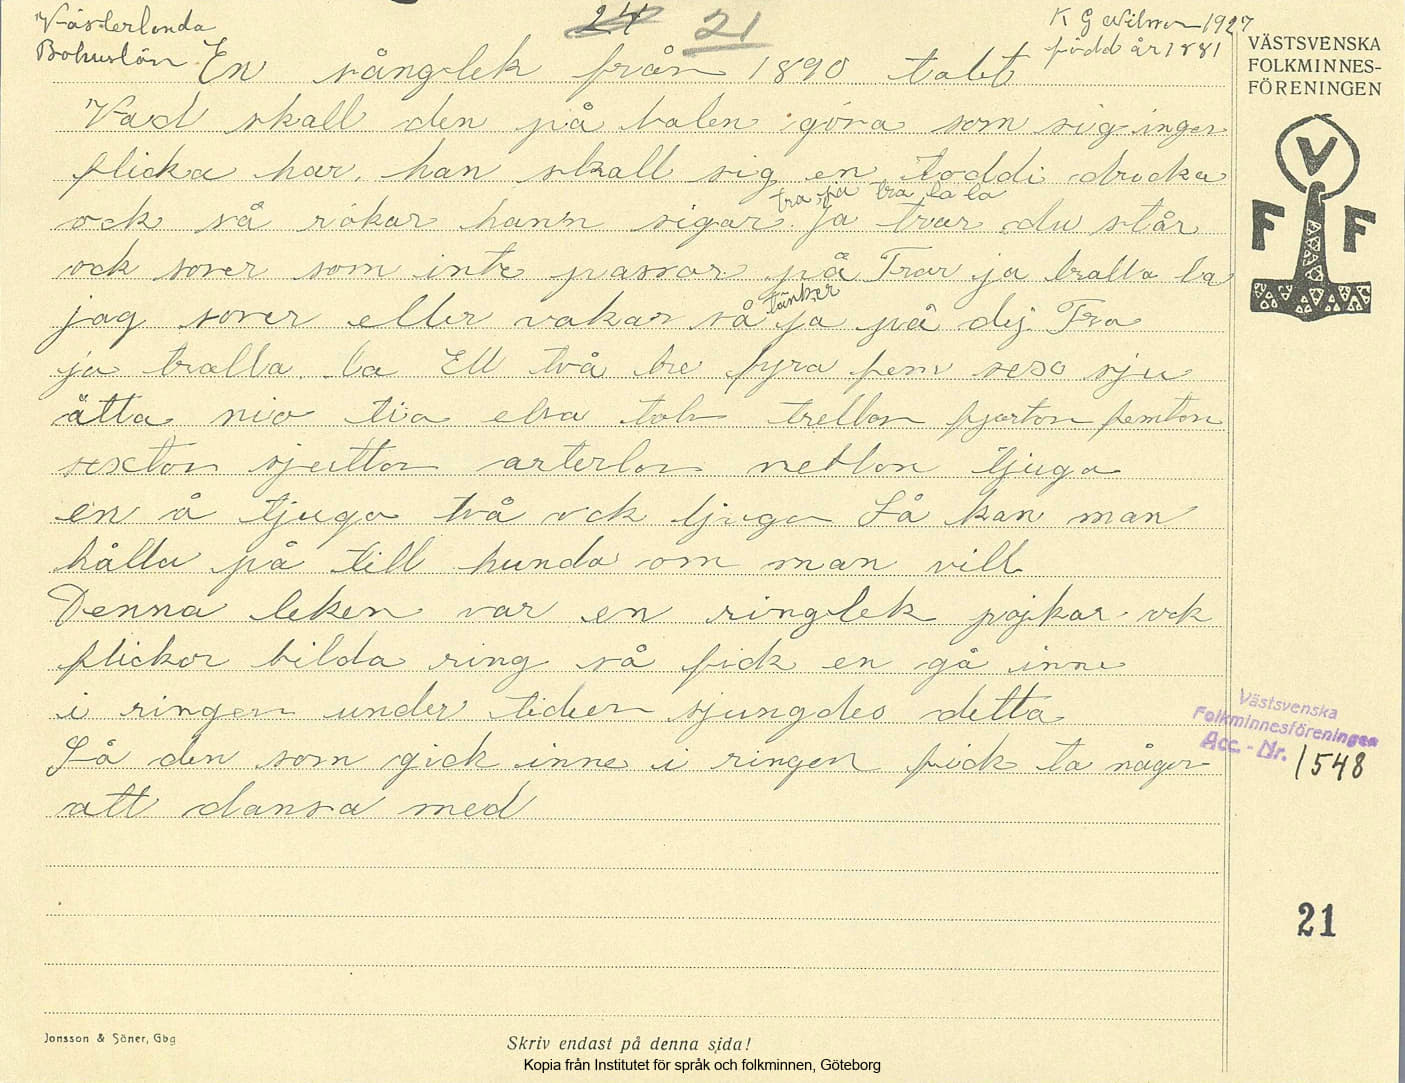 Västerlanda
Bohuslän
24 21
K G Nilsson 1927
född år 1881
VÄSTSVENSKA
FOLKMINNES-
FÖRENINGEN
V
F F
En sånglek från 1890 talet
Vad skall den på balen göra som sig ingen
flicka har. han skall sig en toddi dricka
tra ja tra la la
ock så rökar hann sigar. Ja tvar du står
ock sover som inte passar på Trar ja tralla la
tänker
jag sover eller vakar så ja på dij. Tra
ja tralla la Ett två tre fyra fem sexs sju
åtta nio tio elva tolv tretton fjorton femton
sexton sjutton arterton netton tjugo
en å tjugo två ock tjugo Så kan man
hålla på till hundra om man vill
Denna leken var en ringlek pojkar ock
flickor bilda ring så fick en gå inne
i ringen under tiden sjungdes detta
Så den som gick inne i ringen fick ta någon
att dansa med
Västsvenska
Folkminnesföreningen
Acc.-Nr. 1548
21
Jonsson & Söner, Gbg
Skriv endast på denna sida!
Kopia från Institutet för språk och folkminnen, Göteborg